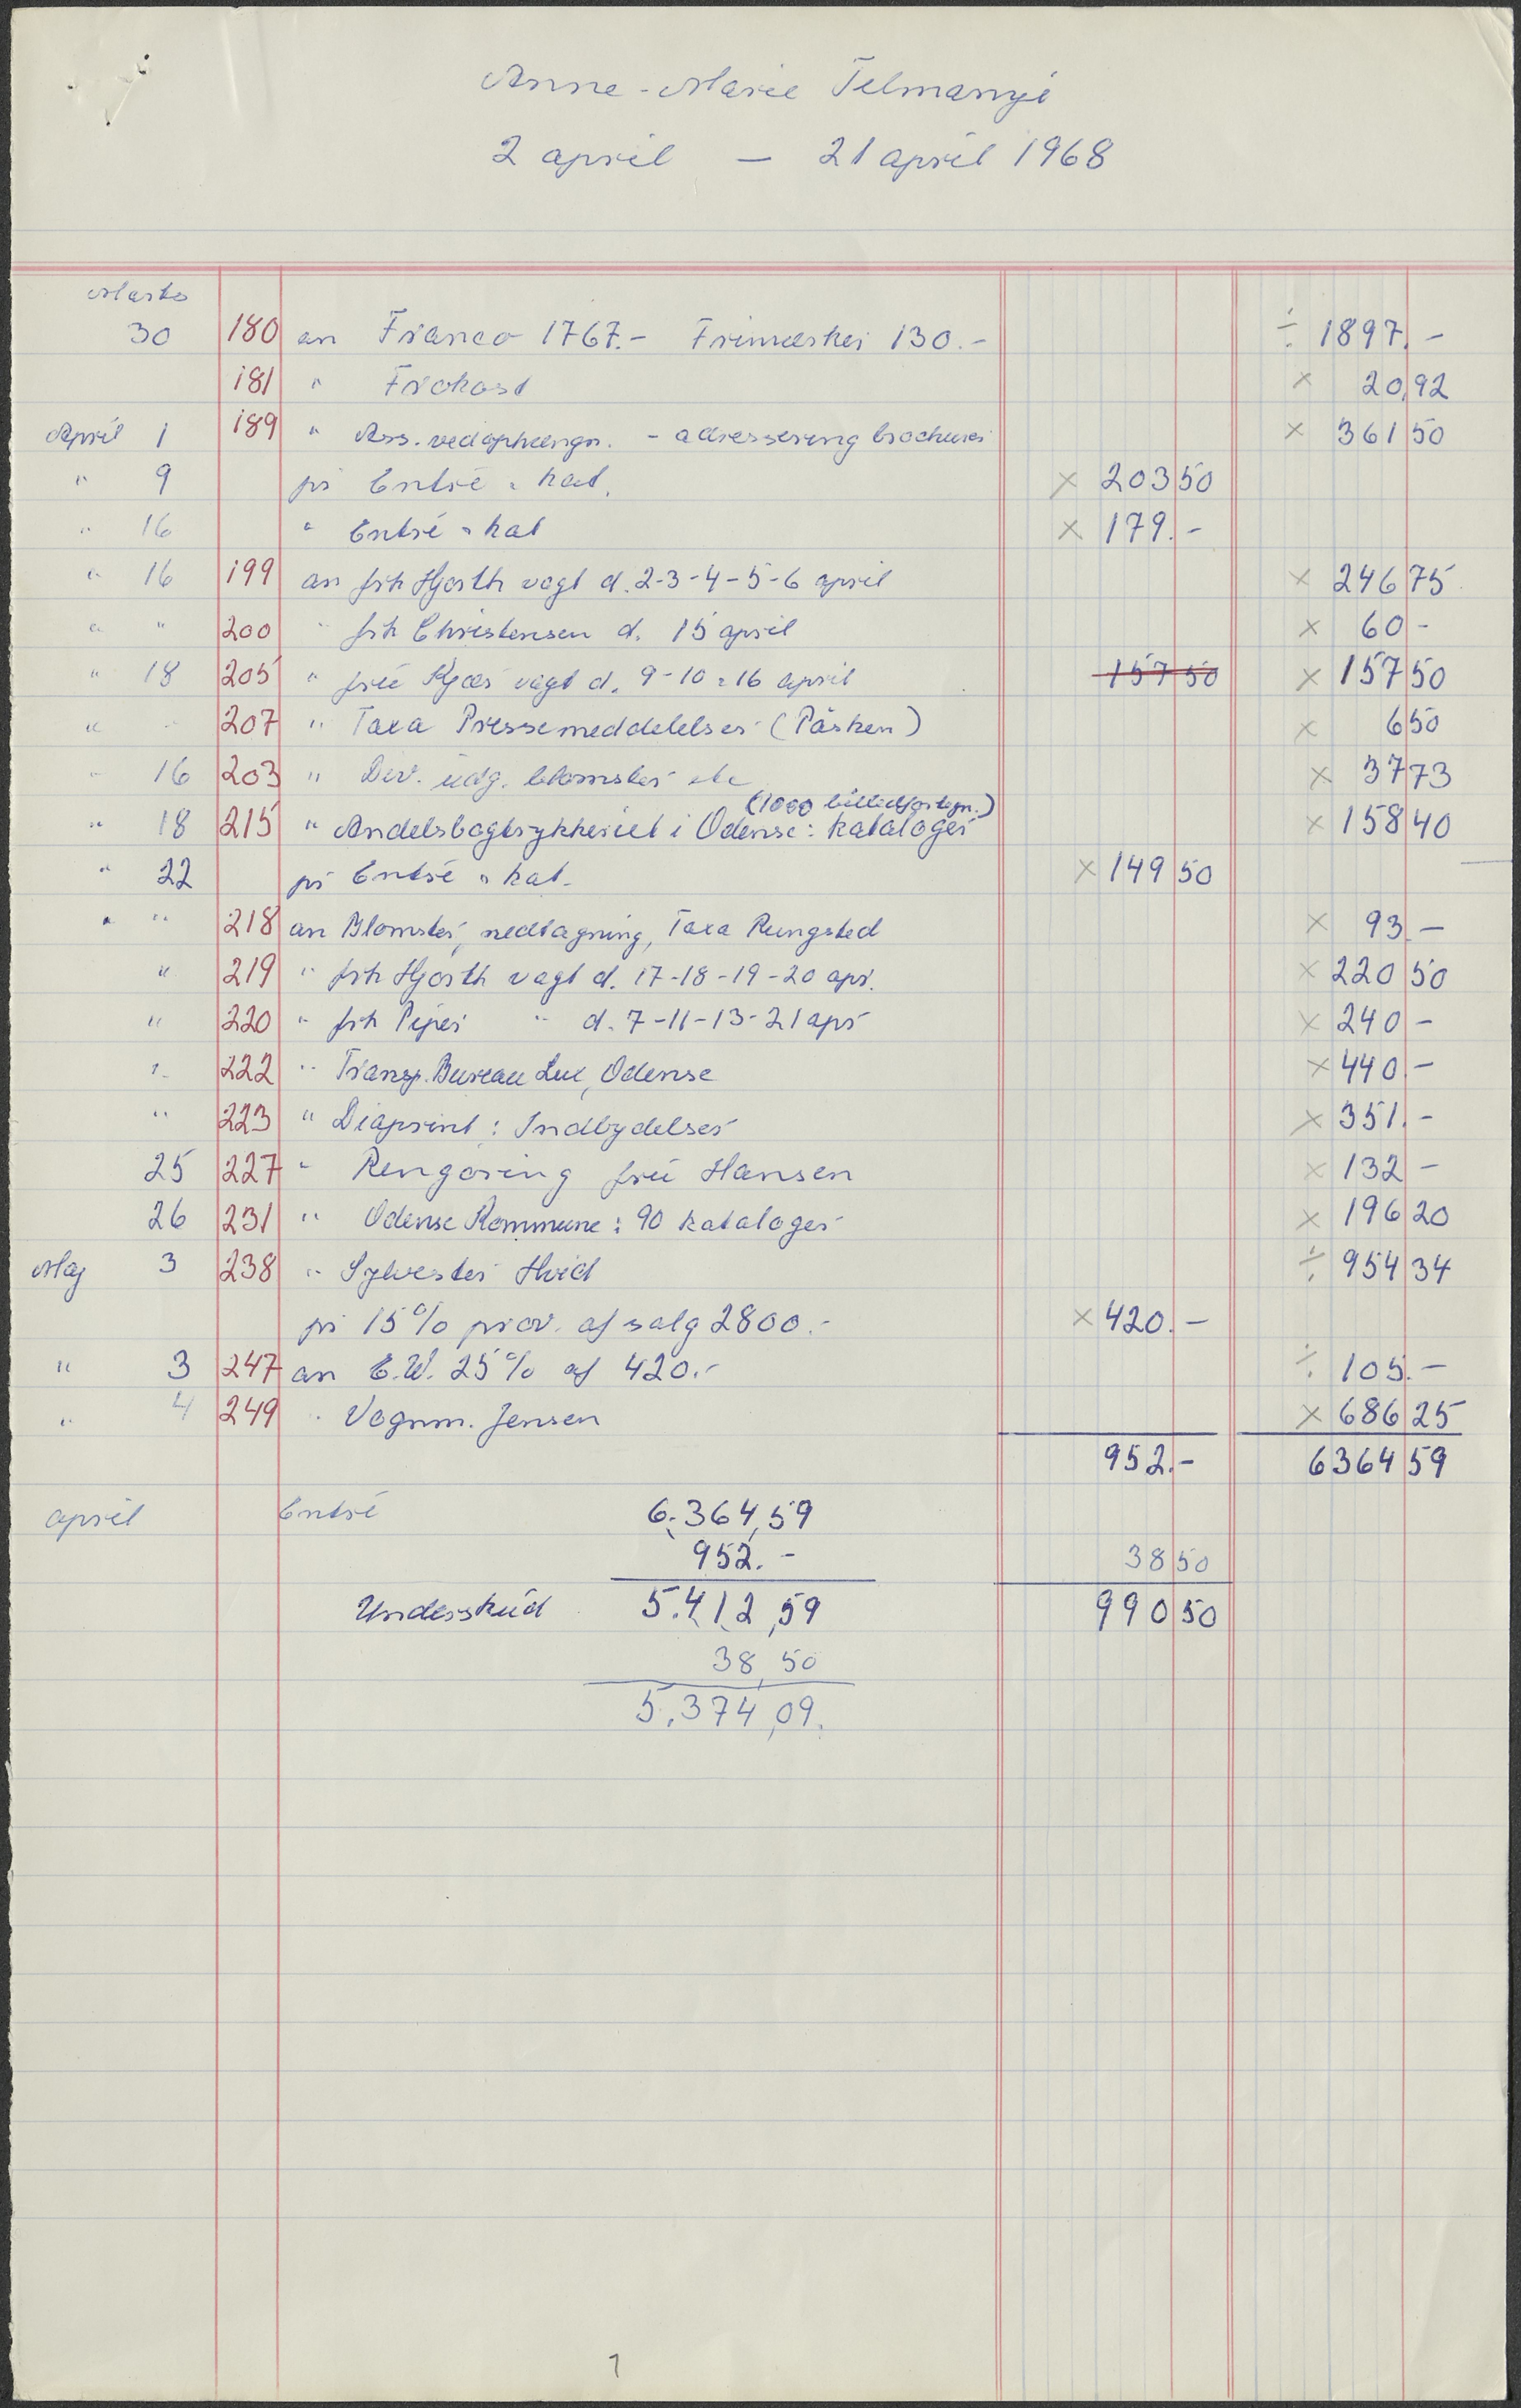 Anne-Marie Telmanyi
2 april — 21 april 1968
Marts
30 180 an Franco 1767.- Frimærker 130.- ÷ 1897.-
181 " Frokost × 20,92
April 1 189 " Ass. ved ophængn. - adressering brochurer × 361 50
" 9 pr Entré + kat. × 203 50
" 16 " Entré + kat × 179.-
" 16 199 an frk Hjorth vagt d. 2-3-4-5-6 april × 246 75
" " 200 " frk Christensen d. 15 april × 60 -
" 18 205 " frú Kjær vagt d. 9-10 + 16 april 157 50 × 157 50
" " 207 " Taxa Pressemeddelelser (Påsken) × 6 50
" 16 203 " Div. udg. blomster etc × 37 73
(1000 billedfortegn.)
" 18 215 " Andelsbogtrykkeriet i Odense: kataloger × 158 40
" 22 pr Entré + kat. × 149 50
" " 218 an Blomster, nedtagning, Taxa Rungsted × 93.-
" 219 " frk Hjorth vagt d. 17-18-19-20 apr. × 220 50
" 220 " frk Piper " d. 7-11-13-21 apr × 240 -
" 222 " Transp. Bureau Lux, Odense × 440.-
" 223 " Diaprint: Indbydelser × 351.-
25 227 " Rengøring frú Hansen × 132 -
26 231 " Odense Kommune: 90 kataloger × 196 20
Maj 3 238 " Sylvester Hvid ÷ 954 34
pr 15% prov. af salg 2800.- × 420.-
" 3 247 an E.W. 25% af 420.- ÷ 105.-
" 4 249 " Vognm. Jensen × 686 25
952.- 6364 59
april Entré 6.364,59
952.- 38 50
Underskúd 5.412,59 990 50
38,50
5.374,09.
7